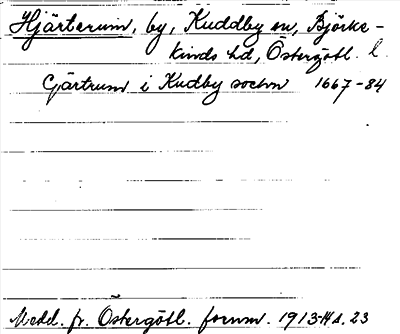 Hjärterum, by, Kuddby sn, Björke-
kinds hd, Östergötl. l.
Gärtrum i Kudby socken 1667-84
Medd. fr. Östergötl. fornm. 1913-14 s. 23